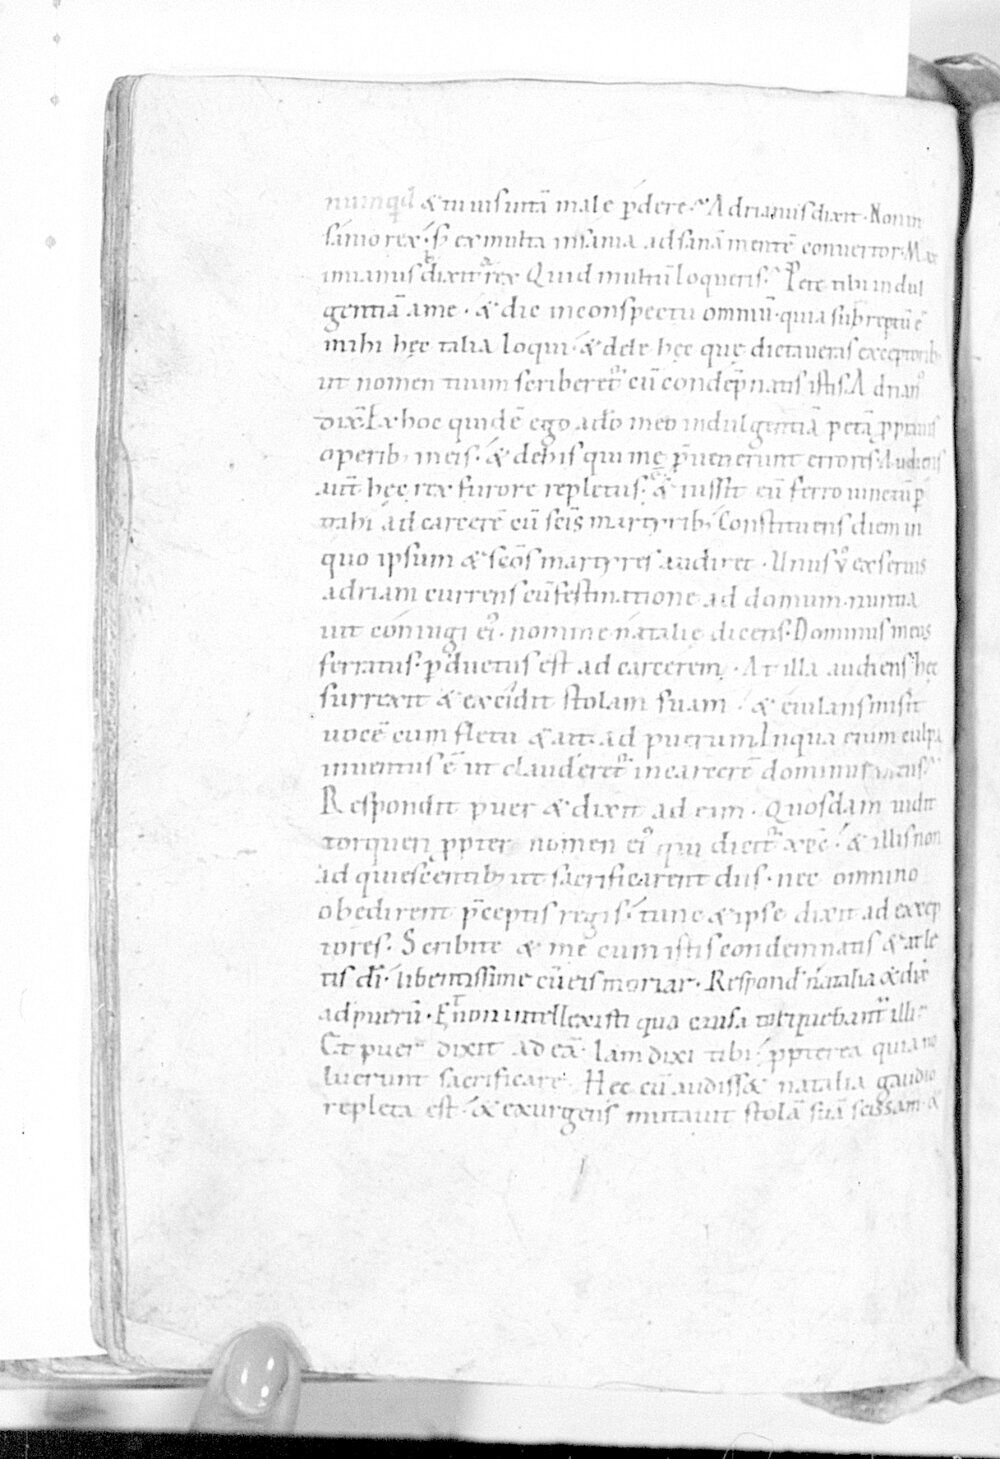 numqd & tu uis uitā male p̄dere. Adrianus dixit. Non in
sanio rex. s; ex multa insania ad sanā mentē conuertor. Max
imianus dixit rex Quid multū loqueris. Pete tibi indul
gentiā a me. & dic in conspectu omniū. quia subreptū ē
mihi hęc talia loqui. & dele hęc quę dictaueras exceptorib;
ut nomen tuum scriberet᷑ cū condēpnatis istis. Adrian᷒
dix̄. Ex hoc quidē ego a dō meo indulgentiā petā ꝓ prauis
operib; meis. & de his qui me p̄uenerunt errores. Audiens
aut̄ hęc rex furore repletus. & iussit eū ferro uinctū ꝑ
trahi ad carcerē cū sc̄is martyrib; Constituens diem in
quo ipsum & sc̄os martyres audiret. Unus v̊ ex seruis
adriani currens cū festinatione ad domum. nuntia
uit coniugi ei᷒. nomine natalię dicens. Dominus meus
serratus. ꝑductus est ad carcerem. At illa audiens hęc
surrexit & excidit stolam suam. & eiulans misit
uocē cum fletu & ait ad puerum. In qua enim culpa
inuentus ē ut clauderet᷑ in carcerē dominus meus
Respondit puer & dixit ad eam. Quosdam uidit
torqueri ꝓpter nomen ei᷒ qui dicit᷑ xp̄c. & illis non
adquiescentib; ut sacrificarent diis. nec omnino
obedirent p̄ceptis regis. tunc & ipse dixit ad excep
tores. Scribite & me cum istis condemnatis & atle
tis dī. libentissime cū eis moriar. Respond̄ natalia & dix̄
ad puerū. Et non intellexisti qua causa torquebant᷑ illi
Et puer dixit ad eā. Iam dixi tibi. ꝓpterea quia no
luerunt sacrificare. Hęc cū audiss& natalia gaudio
repleta est. & exurgens mutauit stolā suā scissam. &